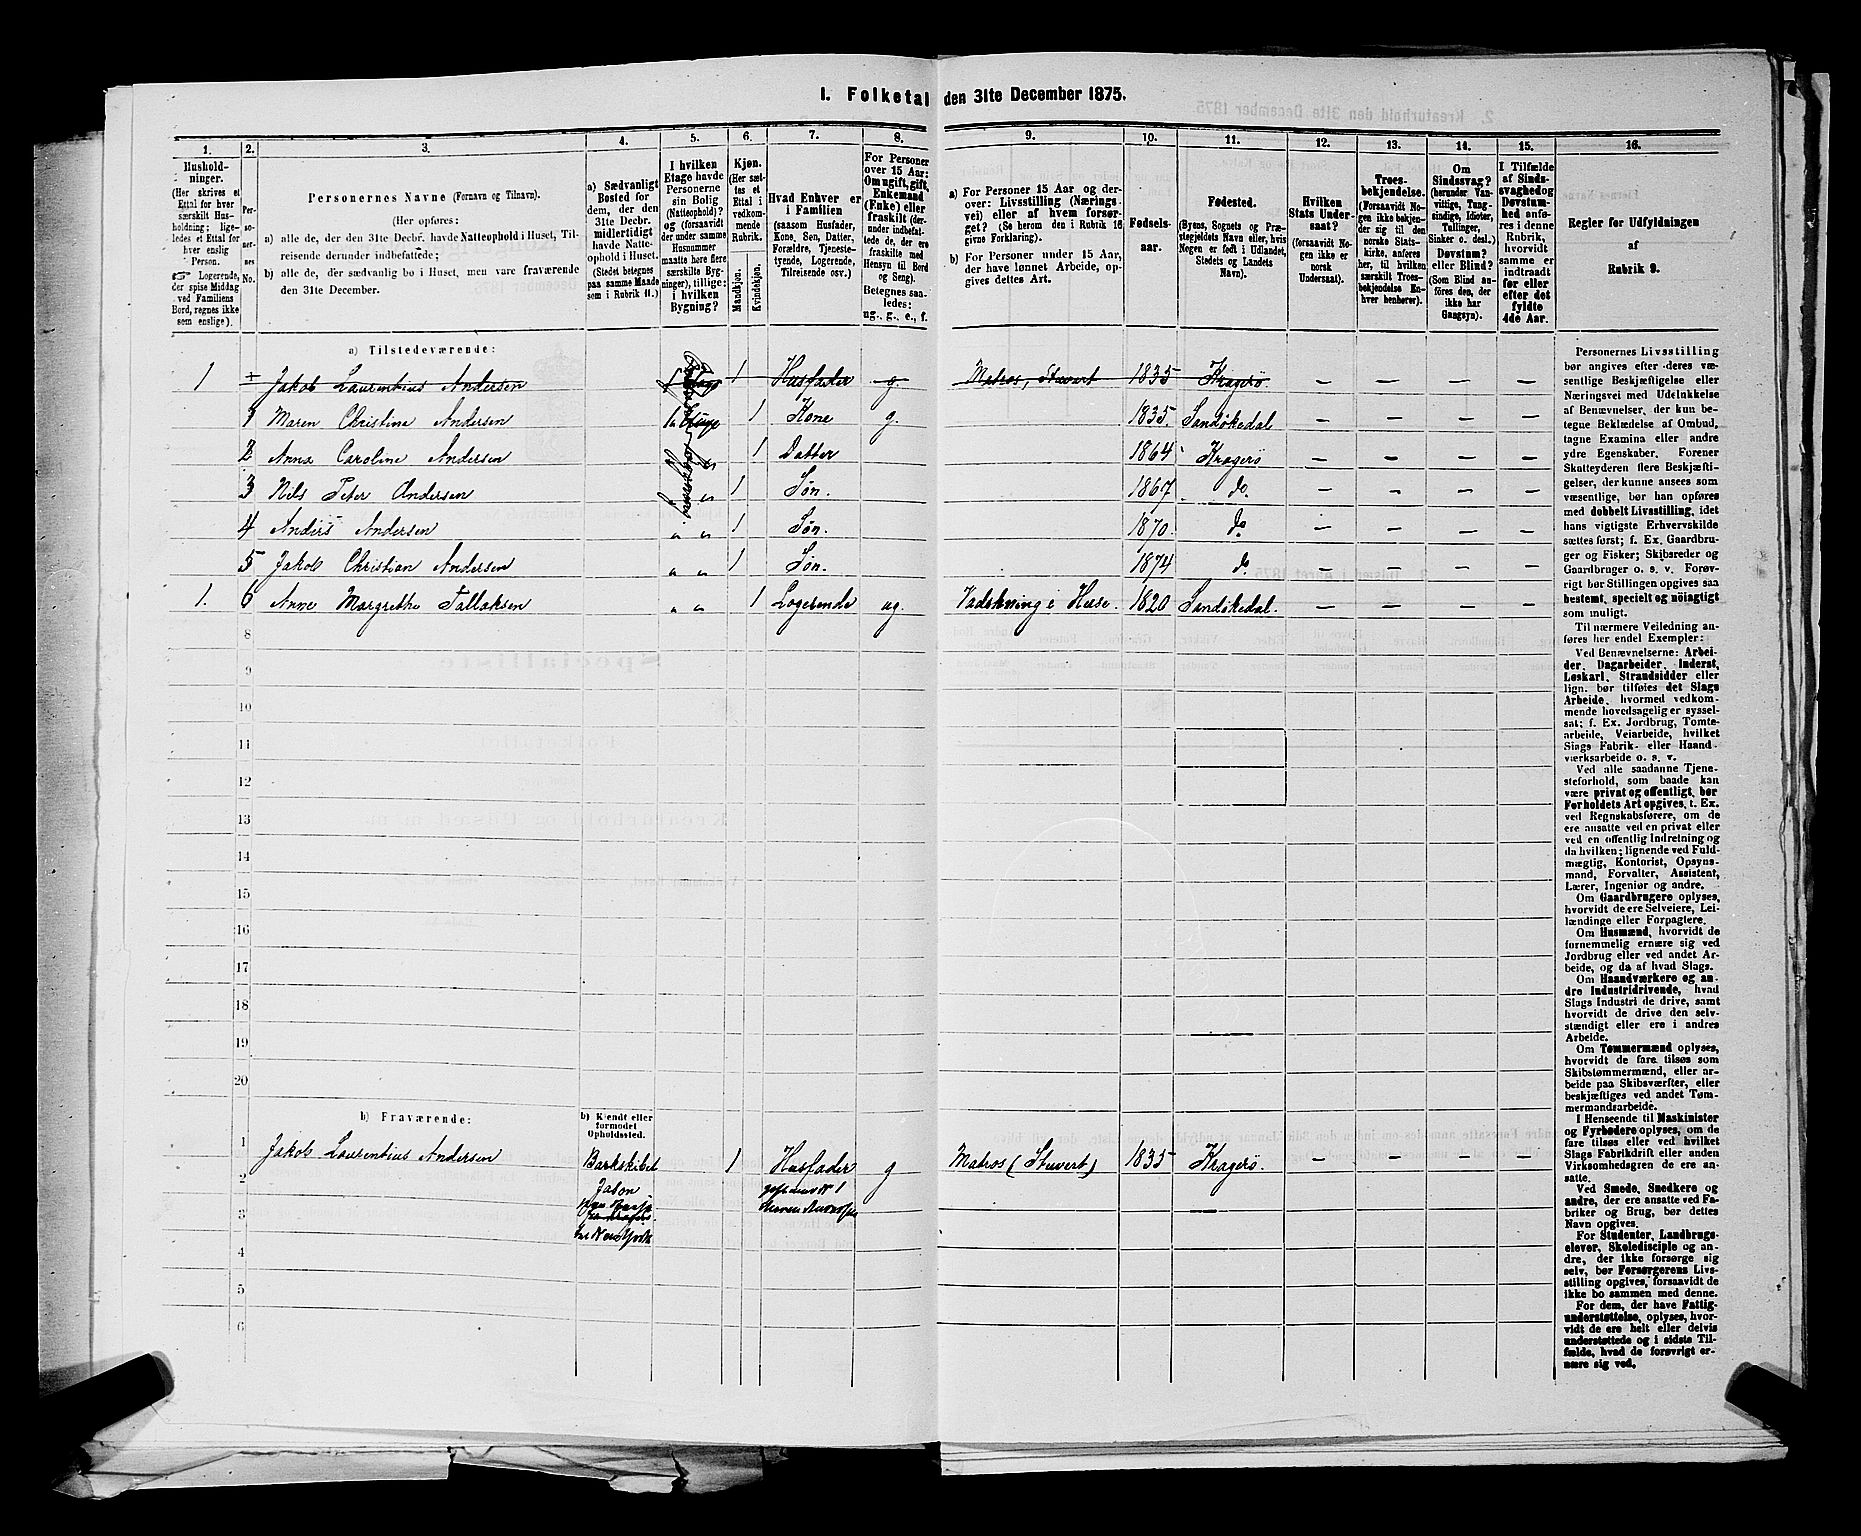 1. Folketal den 31te December 1875.
1. 2. 3. 4. 5. 6. 7. 8. 9. 10. 11. 12. 13. 14. 15. 16.
Hushold-
ninger.
(Her skrives et
Ettal for hver
særskilt Hus-
holdning; lige-
ledes et Ettal for
hver enslig
Person.
☞ Logerende,
der spise Middag
ved Familiens
Bord, regnes ikke
som enslige).
Per-
so-
ner-
nes
No.
Personernes Navne (Fornavn og Tilnavn).
(Her opføres:
a) alle de, der den 31te Decbr. havde Natteophold i Huset, Til-
reisende derunder indbefattede;
b) alle de, der sædvanlig bo i Huset, men vare fraværende
den 31te December.
a) Sædvanligt
Bosted for
dem, der den
31te Decbr.
midlertidigt
havde Natte-
ophold i Huset.
(Stedet betegnes
paa samme Maade
som i Rubrik 11.)
I hvilken
Etage havde
Personerne
sin Bolig
(Natteophold)?
og (forsaavidt
der under samme
Husnummer
maatte høre flere
særskilte Byg-
ninger), tillige:
i hvilken
Bygning?
Kjøn.
(Her sæt-
tes et
Ettal i
vedkom-
mende
Rubrik.
Mandkjøn.
Kvindekjøn.
Hvad Enhver er
i Familien
(saasom Husfader,
Kone, Søn, Datter,
Forældre, Tjeneste-
tyende, Logerende,
Tilreisende osv.)
For Personer
over 15 Aar:
Om ugift, gift,
Enkemand
(Enke) eller
fraskilt (der-
under indbefat-
tede de, der ere
fraskilte med
Hensyn til Bord
og Seng).
Betegnes saa-
ledes:
ug., g., e., f.
a) For Personer 15 Aar og der-
over: Livsstilling (Nærings-
vei) eller af hvem forsør-
get? (Se herom den i Rubrik 16
givne Forklaring).
b) For Personer under 15 Aar,
der have lønnet Arbeide, op-
gives dettes Art.
Fødsels-
aar.
Fødested.
(Byens, Sognets og Præ-
stegjeldets Navn eller, hvis
Negen er født i Udlandet,
Stedets og Landets
Navn).
Hvilken
Stats Under-
saat?
(forsaavidt No-
gen ikke er
norsk
Undersaat).
Troes-
bekjendelse.
(Forsaavidt No-
gen ikke bekjen-
der sig til den
norske Stats-
kirke, anføres
her, til hvilken
særskilt Troes-
bekjendelse En-
hver henhører).
Om
Sindssvag?
(herunder Van-
vittige, Tung-
sindige, Idioter,
Tullinger,
Sinker o. desl.)
Døvstum?
eller Blind?
(Som Blind an-
føres den, der
ikke har
Gangsyn).
I Tilfælde
af Sinds-
svaghed og
Døvstum-
hed anfø-
res i denne
Rubrik,
hvorvidt
samme er
indtraadt
før eller
efter det
fyldte
4de Aar.
Regler for Udfyldningen
af
Rubrik 9.
a) Tilstedeværende:
1 Jakob Laurentius Andersen 1 Husfader g. Matros, Stuvert 1835 Kragerø. — — — —
1 Maren Christine Andersen 1 Kone g. 1835. Sandøkedal — — — —
2 Anna Caroline Andersen 1 Datter 1864 Kragerø — — — —
3 Nils Peter Andersen 1 Søn. 1867 do. — — — —
4 Anders Andersen „ „ 1 Søn. 1870. do — — — —
5 Jakob Christian Andersen „ „ 1 Søn. 1874 do. — — — —
1. 6 Anne Margrethe Tallaksen „ „ 1 Logerende ug. Vadskning i Huse. 1820 Sandøkedal. — — — —
8
9
10
11
12
13
14
15
16
17
18
19
20
b) Fraværende:
b) Kjendt eller
formodet
Opholdssted.
1 Jakob Laurentius Andersen Barkskibet 1 Husfader g Matros (Stuvert) 1835 Kragerø. — — — —
2 Jason
3
4
5
6
Personernes Livsstilling
bør angives efter deres væ-
sentlige Beskjæftigelse eller
Næringsvei med Udelukkelse
af Benævnelser, der kun be-
tegne Beklædelse af Ombud,
tagne Examina eller andre
ydre Egenskaber. Forener
Skatteyderen flere Beskjæfti-
gelser, der kunne ansees som
væsentlige, bør han opføres
med dobbelt Livsstilling, idet
hans vigtigste Erhvervskilde
sættes først; f. Ex. Gaardbru-
ger og Fisker; Skibsreder og
Gaardbruger o. s. v. Forøv-
rigt bør Stillingen opgives saa
bestemt, specielt og nöiagtigt
som muligt.
Til nærmere Veiledning an-
føres her endel Exempler:
Ved Benævnelserne: Arbei-
der, Dagarbeider, Inderst,
Løskarl, Strandsidder eller
lign. bør tilføies det Slags
Arbeide, hvormed vedkom-
mende hovedsagelig er syssel-
sat; f. Ex. Jordbrug, Tomte-
arbeide, Veiarbeide, hvilket
Slags Fabrik- eller Haand-
værksarbeide o. s. v.
Ved alle saadanne Tjene-
steforhold, som baade kan
være privat og offentligt, bør
Forholdets Art opgives, t. Ex.
ved Regnskabsførere, om de
ere ansatte ved en privat eller
ved en offentlig Indretning og
da hvilken; lignende ved Fuld-
mægtig, Kontorist, Opsyns-
mand, Forvalter, Assistent,
Lærer, Ingeniør og andre.
Om Gaardbrugere oplyses,
hvorvidt de ere Selveiere, Lei-
lændinge eller Forpagtere.
Om Husmænd, hvorvidt de
fornemmelig ernære sig ved
Jordbrug eller ved andet Ar-
beide, og da af hvad Slags.
Om Haandværkere og an-
dre Industridrivende, hvad
Slags Industri de drive, samt
hvorvidt de drive den selv-
stændigt eller ere i andres
Arbeide.
Om Tømmermænd oplyses,
hvorvidt de fare tilsøs som
Skibstømmermænd, eller ar-
beide paa Skibsværfter, eller
beskjæftiges ved andet Tøm-
mermandsarbeide.
I Henseende til Maskinister
og Fyrbødere oplyses, om de
fare tilsøs eller ved hvilket
Slags Fabrikdrift eller anden
Virksomhedsgren de ere an-
satte.
Ved Smede, Snedkere og
andre, der ere ansatte ved Fa-
briker og Brug, bør dettes
Navn opgives.
For Studenter, Landbrugs-
elever, Skoledisciple og an-
dre, der ikke forsørge sig
selv, bør Forsørgerens Livs-
stilling opgives, forsaavidt de
ikke bo sammen med denne.
For dem, der have Fattig-
understøttelse, oplyses, hvor-
vidt de ere helt eller delvis
understøttede og i sidste Til-
fælde, hvad de forøvrigt er-
nære sig ved.